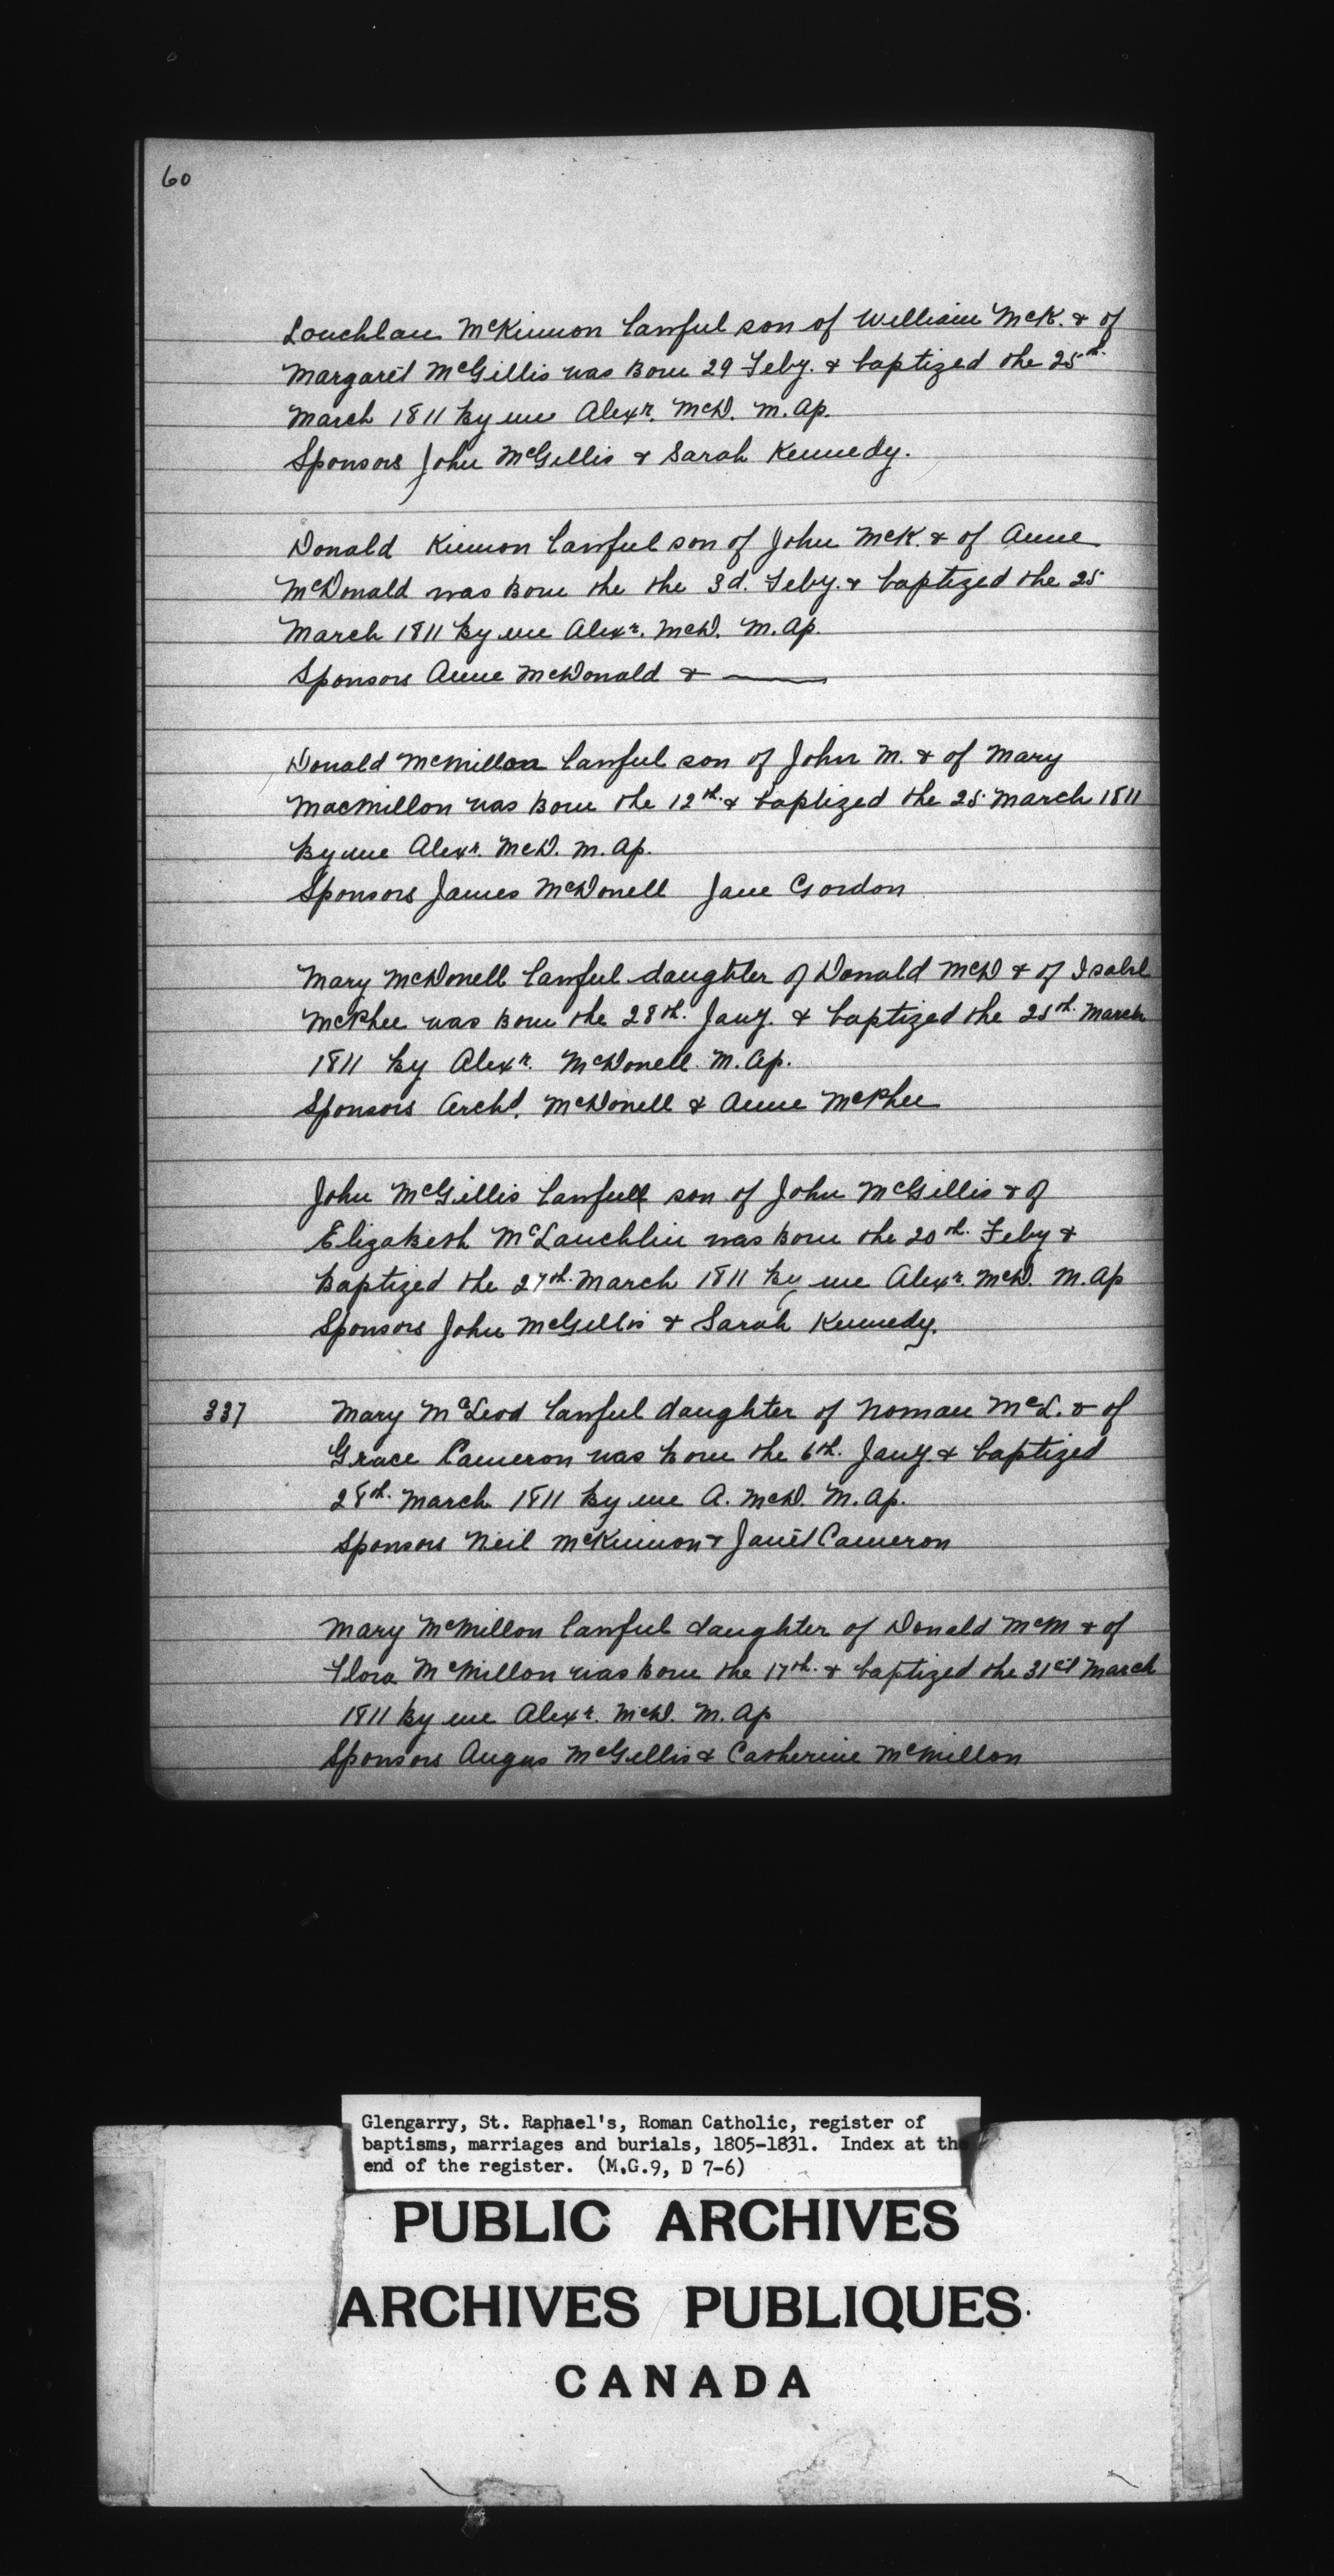 60
Louchlan McKinnon lawful son of William McK. & of
Margaret McGillis was born 29 Feby. & baptized the 25th.
March 1811 by me Alexr. McD. M. Ap.
Sponsors John McGillis & Sarah Kennedy.
Donald Kinnon lawful son of John McK. & of Anne
McDonald was born the the 3d. Feby. & baptized the 25
March 1811 by me Alexr. McD. M. Ap.
Sponsors Anne McDonald & ———
Donald McMillan lawful son of John M. & of Mary
MacMillon was born the 12th. & baptized the 25 March 1811
by me Alexr. McD. M. Ap.
Sponsors James McDonell Jane Gordon
Mary McDonell lawful daughter of Donald McD & of Isabel
McPhee was born the 28th. Jany. & baptized the 25th. March
1811 by Alexr. McDonell M. Ap.
Sponsors Archd. McDonell & Anne McPhee
John McGillis lawfull son of John McGillis & of
Elizabeth McLauchlin was born the 20th. Feby &
baptized the 27th. March 1811 by me Alexr. McD. M. Ap
Sponsors John McGillis & Sarah Kennedy.
337 Mary McLeod lawful daughter of Noman McL. & of
Grace Cameron was born the 6th. Jany. & baptized
28th. March 1811 by me A. McD. M. Ap.
Sponsors Neil McKinnon & Janet Cameron
Mary McMillon lawful daughter of Donald McM & of
Flora McMillon was born the 17th. & baptized the 31st March
1811 by me Alexr. McD. M. Ap
Sponsors Angus McGillis & Catherine McMillon
Glengarry, St. Raphael's, Roman Catholic, register of
baptisms, marriages and burials, 1805-1831. Index at the
end of the register. (M.G.9, D 7-6)
PUBLIC ARCHIVES
ARCHIVES PUBLIQUES
CANADA